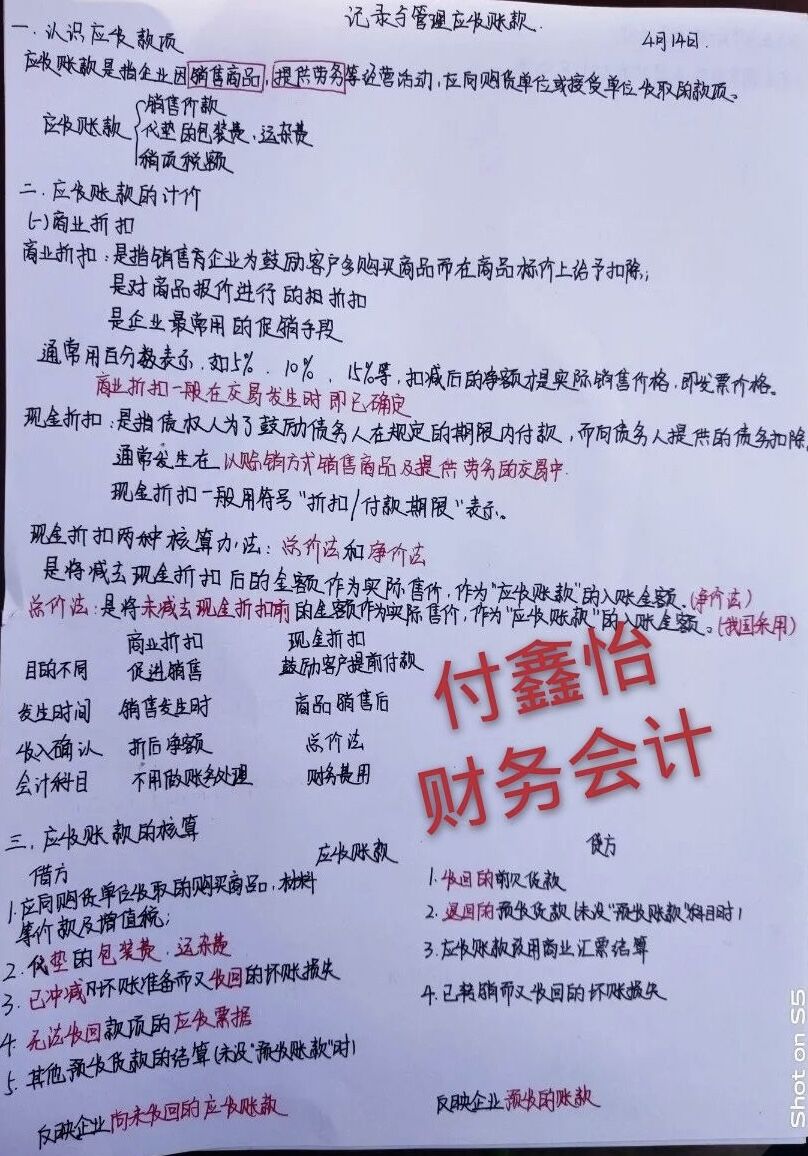 记录与管理应收账款.
4月14日.
一.认识应收款项
应收账款是指企业因销售商品,提供劳务等经营活动,应向购货单位或接受单位收取的款项。
应收账款
销售价款
代垫的包装费、运杂费
销项税额
二.应收账款的计价
(一)商业折扣
商业折扣:是指销售方企业为鼓励客户多购买商品而在商品标价上给予扣除;
是对商品报价进行的折扣
是企业最常用的促销手段
通常用百分数表示.如5%、10%、15%等,扣减后的净额才是实际销售价格,即发票价格。
商业折扣一般在交易发生时即已确定
现金折扣:是指债权人为了鼓励债务人在规定的期限内付款,而向债务人提供的债务扣除
通常发生在以赊销方式销售商品及提供劳务的交易中.
现金折扣一般用符号“折扣/付款期限”表示。
现金折扣两种核算办法:总价法和净价法
是将减去现金折扣后的金额作为实际售价,作为“应收账款”的入账金额.(净价法)
总价法:是将未减去现金折扣前的金额作为实际售价,作为“应收账款”的入账金额。(我国采用)
商业折扣 现金折扣
目的不同 促进销售 鼓励客户提前付款
发生时间 销售发生时 商品销售后
收入确认 折后净额 总价法
会计科目 不用做账务处理 财务费用
付鑫怡
财务会计
三.应收账款的核算
借方 应收账款 贷方
1.应向购货单位收取的购买商品,材料
等价款及增值税;
2.代垫的包装费、运杂费
3.已冲减坏账准备而又收回的坏账损失
4.无法收回款项的应收票据
5.其他预收货款的结算(未设“预收账款”时)
反映企业尚未收回的应收账款
1.收回的前欠货款
2.退回的预收货款(未设“预收账款”科目时)
3.应收账款改用商业汇票结算
4.已转销而又收回的坏账损失
反映企业预收的账款
Shot on S5